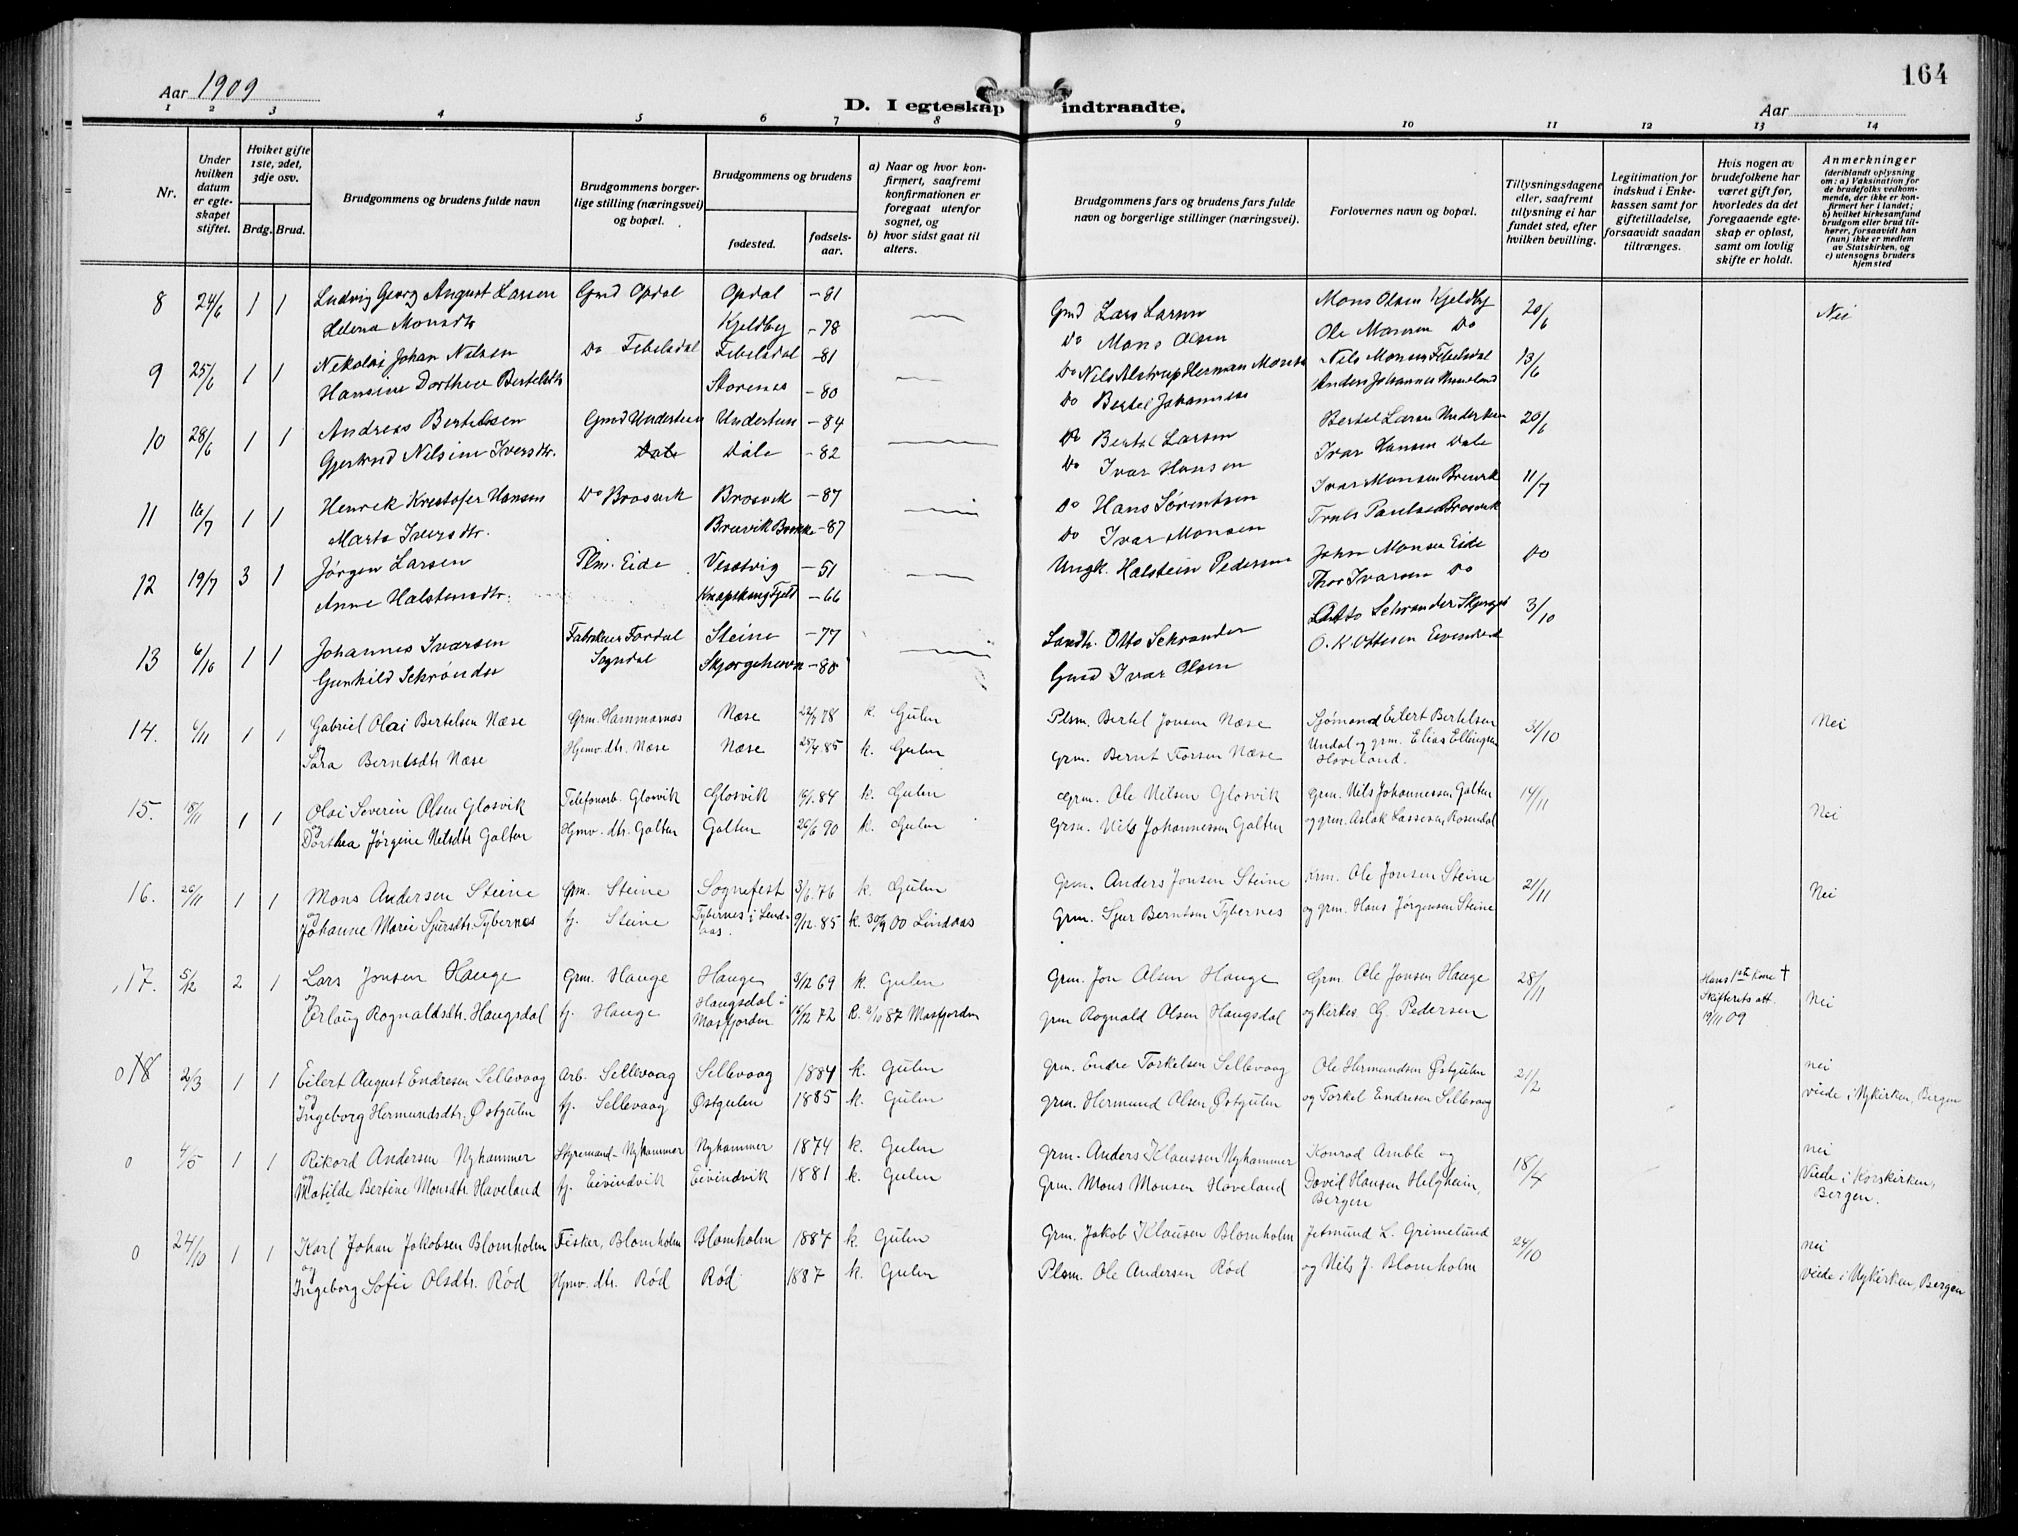 164
Aar 1909
D. I egteskap indtraadte.
Aar
1 2 3 4 5 6 7 8 9 10 11 12 13 14
Nr.
Under hvilken datum er egteskapet stiftet.
Hviket gifte 1ste, 2det, 3dje osv.
Brdg. Brud.
Brudgommens og brudens fulde navn
Brudgommens borgerlige stilling (næringsvei) og bopæl.
Brudgommens og brudens
fødested.
fødselsaar.
a) Naar og hvor konfirmert, saafremt konfirmationen er foregaat utenfor sognet, og
b) hvor sidst gaat til alters.
Brudgommens fars og brudens fars fulde navn og borgerlige stillinger (næringsvei).
Forlovernes navn og bopæl.
Tillysningsdagene eller, saafremt tillysning ei har fundet sted, efter hvilken bevilling.
Legitimation for indskud i Enkekassen samt for giftetilladelse, forsaavidt saadan tiltrænges.
Hvis nogen av brudefolkene har været gift før, hvorledes da det foregaaende egteskap er opløst, samt om lovlig skifte er holdt.
Anmerkninger (deriblandt oplysning om: a) Vaksination for de brudefolks vedkommende, der ikke er konfirmert her i landet; b) hvilket kirkesamfund brudgom eller brud tilhører, forsaavidt han (hun) ikke er medlem av Statskirken, og c) utensogns bruders hjemsted
8 24/6 1 1 Ludvig Georg August Larsen Gmd Opdal Opdal -81 Gmd Lars Larsen Mons Olsen Kjeldby 20/6 Nei
Helena Monsdtr Kjeldby -78 Do Mons Olsen Ole Monsen Do
9 25/6 1 1 Nikolai Johan Nilsen Do Febelsdal Febelsdal -81 Do Nils Alstrup Herman Monsen Nils Monsen Febelsdal 13/6
Hansine Dorthea Bertelsdtr Storenes -80 Do Bertel Johannes Anders Johannes
10 28/6 1 1 Andreas Bertelsen Gmd Undertun Undertun -84 Do Bertel Larsen Bertel Larsen Undertun 20/6
Gjertrud Nilsine Iversdtr. Dale Dale -82 Do Ivar Hansen Ivar Hansen Dale
11 16/7 1 1 Henrik Kristofer Hansen Do Brosvik Brosvik -87 Do Hans Sørentsen Ivar Monsen Brevik 11/7
Marta Iversdtr. Brevik -87 Do Ivar Monsen Paulsen Brosvik
12 19/7 3 1 Jørgen Larsen Plm. Eide -51 Ungk. Halstein Pedersen John Monsen Eide Do
Anne Halstensdtr. -66 Thor Ivarsen Do
13 6/10 1 1 Johannes Ivarsen Fordal Steine -77 Landh. Otto Schrøder Otto Schrøder 3/10
Gunhild Sogndal Skjergehavn -80 Gmd Ivar Olsen O. K. Ottesen Eivindvik
14. 6/11 1 1 Gabriel Olai Bertelsen Næse Grm. Hammarsnæs Næse 22/7 78 k. Gulen Plsm. Bertel Jonsen Næse Sjømand Eilert Bertelsen 31/10 Nei
og Sara Berntsdtr. Næse Hjemv. dtr. Næse Næse 25/4 85 k. Gulen Grm. Bernt Torsen Næse Undal og grm. Elias Ellingsen Haveland.
15. 18/11 1 1 Olai Severin Olsen Glosvik Telefonarb. Glosvik Glosvik 19/1 84 k. Gulen Grm. Ole Nilsen Glosvik Grm. Nils Johannessen Galten 14/11 Nei
og Dorthea Jørgine Nilsdtr. Galten Hjmv. dtr. Galten Galten 26/6 90 k. Gulen Grm. Nils Johannessen Galten og grm. Aslak Lassesen Rosendal
16. 26/11 1 1 Mons Andersen Steine Grm. Steine Sognefest 3/6 76 k. Gulen Grm. Anders Jonsen Steine Grm. Ole Jonsen Steine 21/11 Nei
og Johanne Marie Sjursdtr. Tybernes tj. Steine Tybernes i Lindaas. 9/12 85 k. 30/9 00 Lindaas Grm. Sjur Berntsen Tybernes og grm. Hans Jørgensen Steine
17. 5/12 2 1 Lars Jonsen Hauge Grm. Hauge Hauge 3/12 69 k. Gulen Grm. Jon Olsen Hauge Grm. Ole Jonsen Hauge 28/11 Hans 1ste kone † Skifterets att. 19/11 09 Nei
og Erlaug Rognaldsdtr. Haugsdal tj. Hauge Haugsdal i Masfjorden 16/12 72 k. 2/10 87 Masfjorden grm Rognald Olsen Haugsdal og Kirkes. G. Pedersen
0 18 2/3 1 1 Eilert August Endresen Sellevaag Arb. Sellevaag Sellevaag 1884 k. Gulen Grm. Endre Torkelsen Sellevaag Ole Hermundsen Østgulen 21/2 nei
og Ingeborg Hermundsdtr. Østgulen tj. Sellevaag Østgulen 1885 k. Gulen grm. Hermund Olsen Østgulen og Torkel Endresen Sellevaag viede i Nykirken, Bergen
0 4/5 1 1 Rikard Andersen Nyhammer Styrmand Nyhammer Nyhammer 1874 k. Gulen Grm. Anders Klaussen Nyhammer Konrad Amble og 18/4 nei
og Matilde Bertine Monsdtr. Haveland tj. Eivindvik Eivindvik 1881 k. Gulen Grm. Mons Monsen Haveland David Hansen Helgheim, Bergen Viede i Korskirken, Bergen.
0 24/10 1 1 Karl Johan Jakobsen Blomholm Fisker, Blomholm Blomholm 1887 k. Gulen Grm. Jakob Klausen Blomholm Jetmund L. Grimelund 24/10 nei
og Ingeborg Sofie Olsdtr. Rød Hjmv. dtr. Rød Rød 1887 k. Gulen Plsm. Ole Andersen Rød og Nils J. Blomholm Viede i Nykirken, Bergen